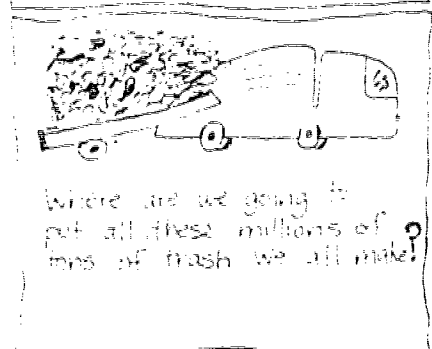 Where are we going to
put all these millions of
tons of trash we all make?